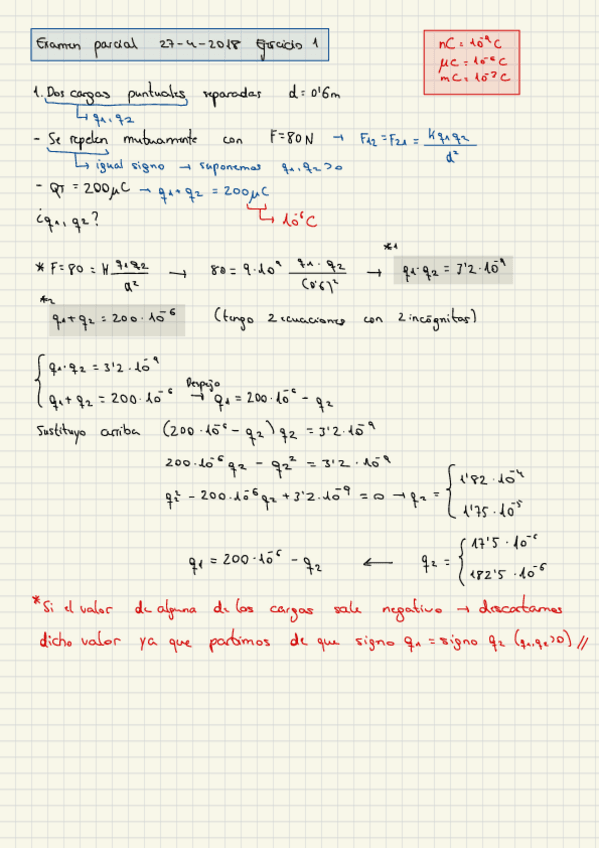 Examen parcial 27-4-2018 Ejercicio 1
nC = 10⁻⁹ C
μC = 10⁻⁶ C
mC = 10⁻³ C
1. Dos cargas puntuales separadas d = 0'6m
↳ q₁, q₂
- Se repelen mutuamente con F = 80N → F₁₂ = F₂₁ = K q₁ q₂ / d²
↳ igual signo → suponemos q₁, q₂ > 0
- QT = 200 μC → q₁ + q₂ = 200 μC
↳ 10⁻⁶ C
¿q₁, q₂?
*1
* F = 80 = K q₁ q₂ / d² → 80 = 9·10⁹ q₁ · q₂ / (0'6)² → q₁ · q₂ = 3'2 · 10⁻⁹
*2
q₁ + q₂ = 200 · 10⁻⁶ (tengo 2 ecuaciones con 2 incógnitas)
{ q₁ · q₂ = 3'2 · 10⁻⁹
q₁ + q₂ = 200 · 10⁻⁶ Despejo → q₁ = 200 · 10⁻⁶ - q₂
Sustituyo arriba (200 · 10⁻⁶ - q₂) q₂ = 3'2 · 10⁻⁹
200 · 10⁻⁶ q₂ - q₂² = 3'2 · 10⁻⁹
q₂² - 200 · 10⁻⁶ q₂ + 3'2 · 10⁻⁹ = 0 → q₂ = { 1'82 · 10⁻⁴
1'75 · 10⁻⁵
q₁ = 200 · 10⁻⁶ - q₂ ← q₂ = { 17'5 · 10⁻⁶
182'5 · 10⁻⁶
* Si el valor de alguna de las cargas sale negativo → descartamos
dicho valor ya que partimos de que signo q₁ = signo q₂ (q₁, q₂ > 0) //